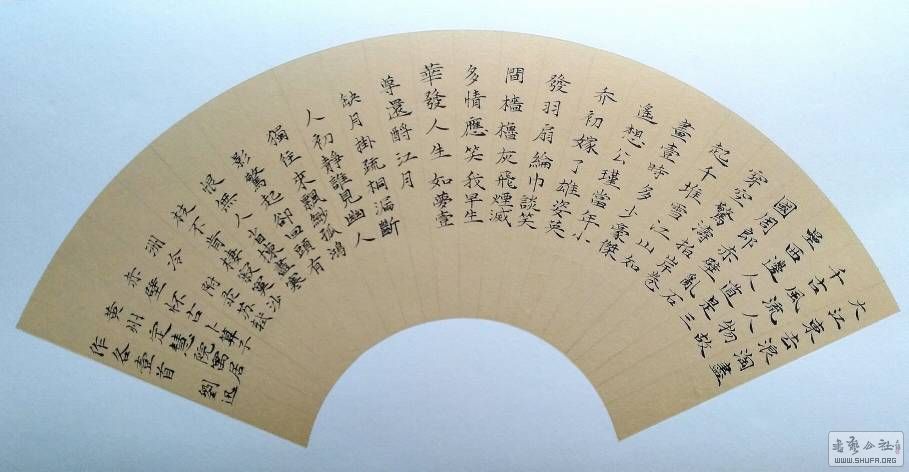 大江東去浪淘盡
千古風流人物故
壘西邊人道是三
國周郎赤壁亂石
穿空驚濤拍岸卷
起千堆雪江山如
畫壹時多少豪傑
遙想公瑾當年小
乔初嫁了雄姿英
發羽扇綸巾談笑
間檣櫓灰飛煙滅
多情應笑我早生
華發人生如夢壹
尊還酹江月
缺月掛疏桐漏斷
人初靜誰見幽人
獨往來飄緲孤鴻
影驚起卻回頭有
恨無人省揀盡寒
枝不肯棲寂寞沙
洲冷 附录苏轼
赤壁怀古卜算子
黄州定慧院寓居
作各壹首 劉迅
书艺公社
WWW.SHUFA.ORG